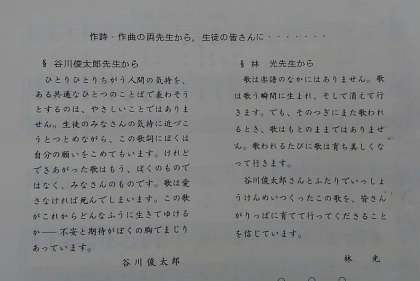 作詩・作曲の両先生から，生徒の皆さんに・・・・・・・
§ 谷川俊太郎先生から
ひとりひとりちがう人間の気持を、
ある共通なひとつのことばで表わそう
とするのは、やさしいことではありま
せん。生徒のみなさんの気持に近づこ
うとつとめながら、この歌詞にぼくは
自分の願いをこめてもいます。けれど
できあがった歌はもう、ぼくのもので
はなく、みなさんのものです。歌は愛
さなければ死んでしまいます。この歌
がこれからどんなふうに生きてゆける
か──不安と期待がぼくの胸でまじり
あっています。
谷川俊太郎
§ 林 光先生から
歌は楽譜のなかにはありません。歌
は歌う瞬間に生まれ、そして消えて行
きます。でも、そのつぎにまた歌われ
るとき、歌はもとのままではありませ
ん。歌われるたびに歌は育ち美しくな
って行きます。
谷川俊太郎さんとふたりでいっしょ
うけんめいつくったこの歌を、皆さん
がりっぱに育てて行ってくださること
を信じています。
林 光